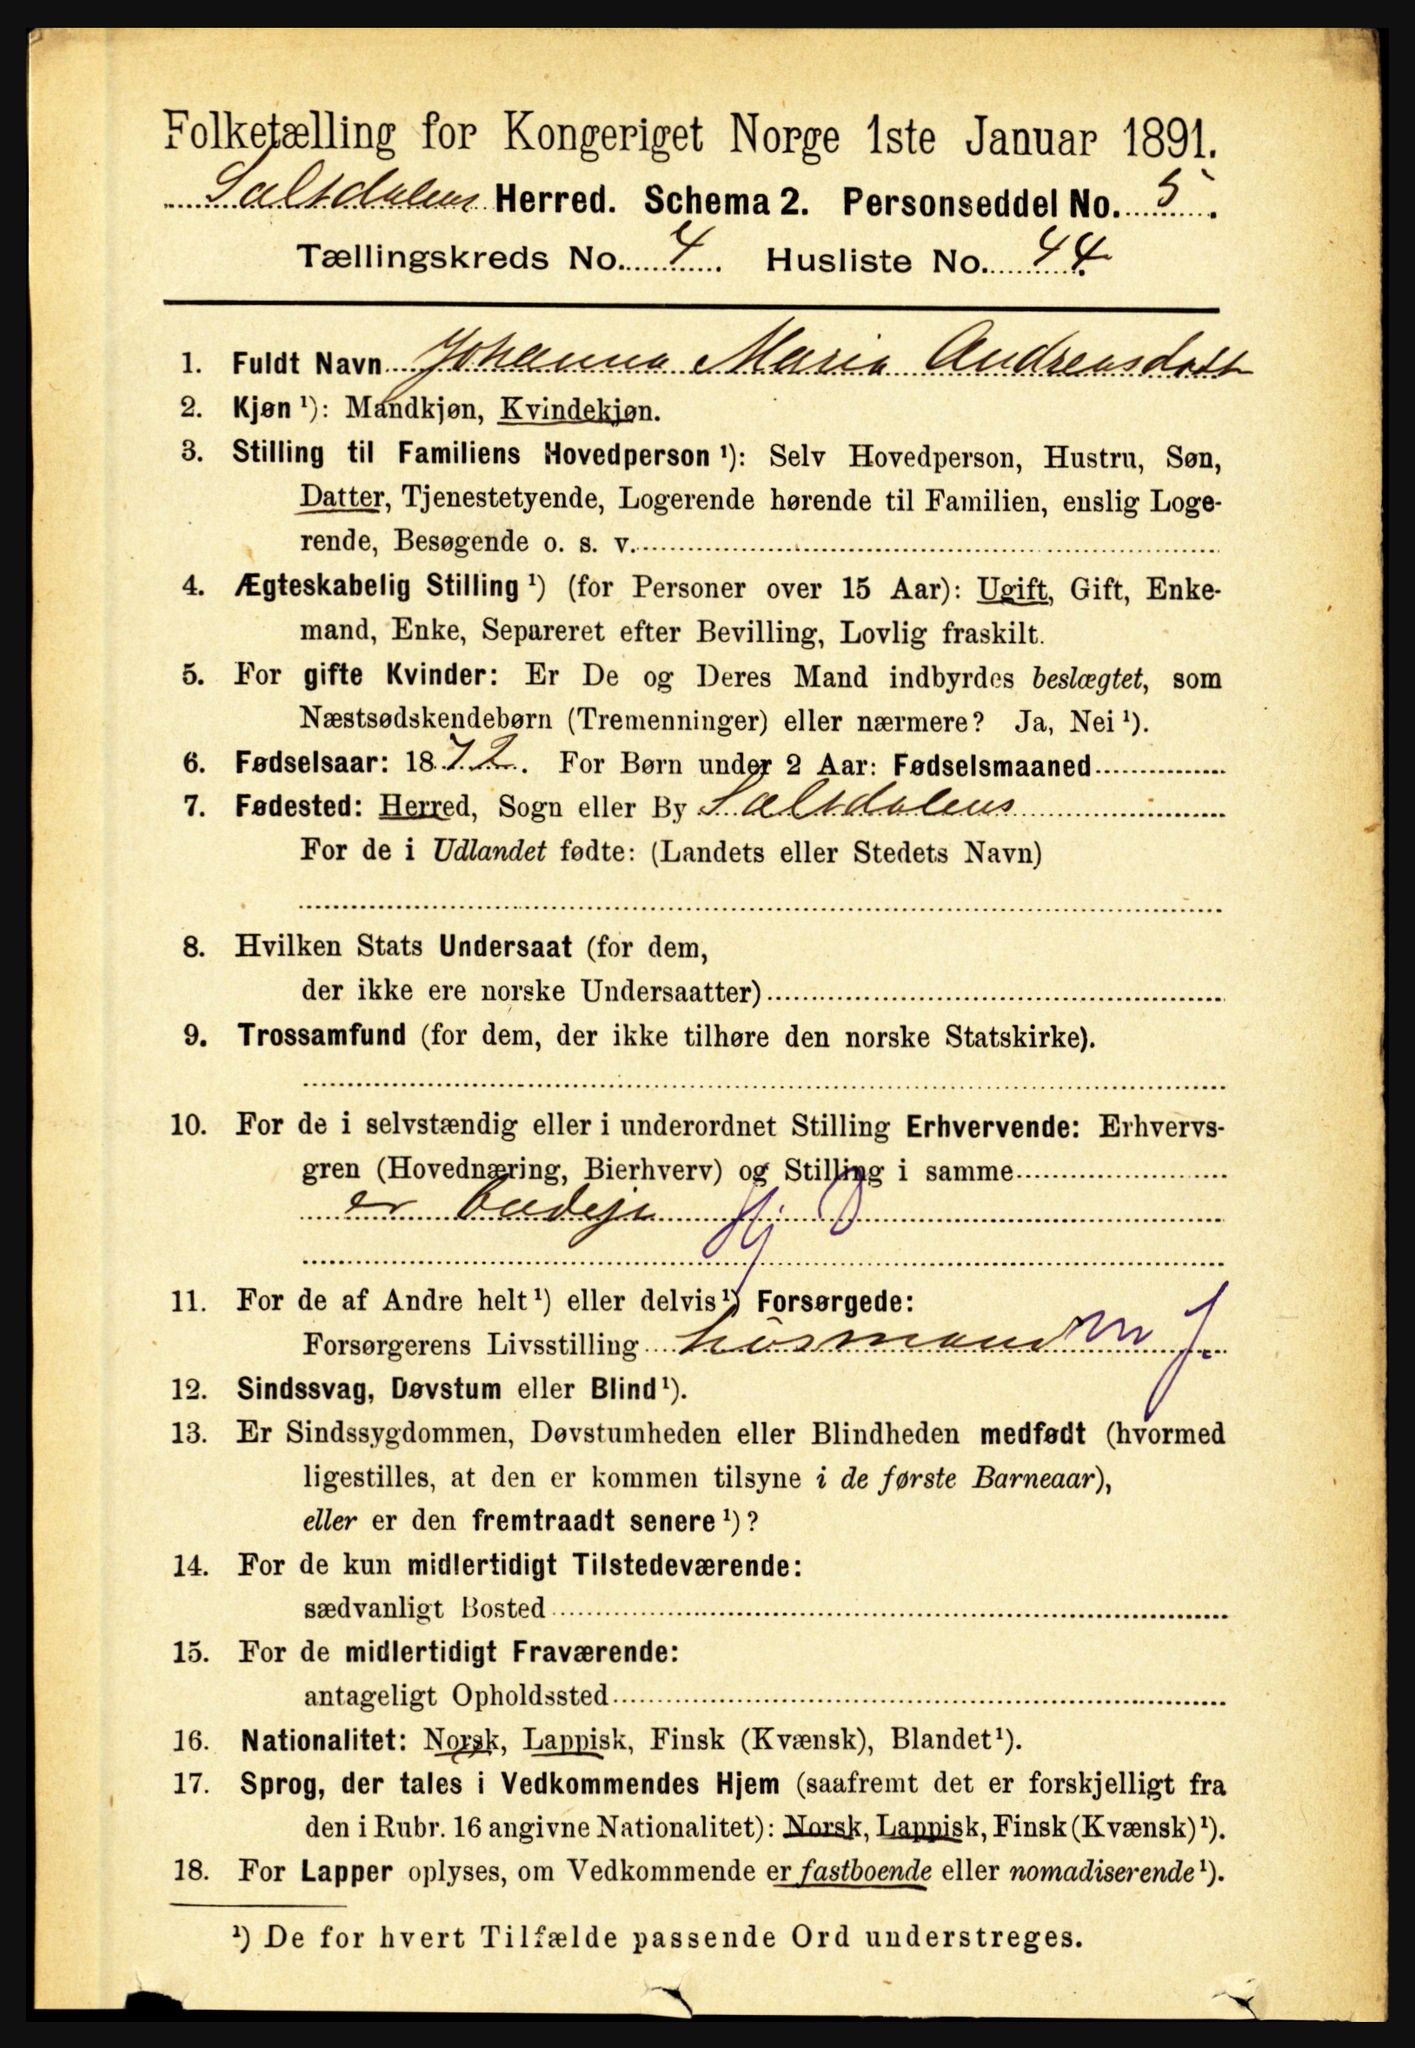 Folketælling for Kongeriget Norge 1ste Januar 1891.
Saltdalens Herred. Schema 2. Personseddel No. 5.
Tællingskreds No. 4. Husliste No. 44.
1. Fuldt Navn Johanna Maria Andreasdatt
2. Kjøn ¹): Mandkjøn, Kvindekjøn.
3. Stilling til Familiens Hovedperson ¹): Selv Hovedperson, Hustru, Søn,
Datter, Tjenestetyende, Logerende hørende til Familien, enslig Loge-
rende, Besøgende o. s. v.
4. Ægteskabelig Stilling ¹) (for Personer over 15 Aar): Ugift, Gift, Enke-
mand, Enke, Separeret efter Bevilling, Lovlig fraskilt.
5. For gifte Kvinder: Er De og Deres Mand indbyrdes beslægtet, som
Næstsødskendebørn (Tremenninger) eller nærmere? Ja, Nei ¹).
6. Fødselsaar: 1872. For Børn under 2 Aar: Fødselsmaaned
7. Fødested: Herred, Sogn eller By Saltdalens
For de i Udlandet fødte: (Landets eller Stedets Navn)
8. Hvilken Stats Undersaat (for dem,
der ikke ere norske Undersaatter)
9. Trossamfund (for dem, der ikke tilhøre den norske Statskirke).
10. For de i selvstændig eller i underordnet Stilling Erhvervende: Erhvervs-
gren (Hovednæring, Bierhverv) og Stilling i samme
er budeje Hj D
11. For de af Andre helt ¹) eller delvis ¹) Forsørgede:
Forsørgerens Livsstilling husmand m J.
12. Sindssvag, Døvstum eller Blind ¹).
13. Er Sindssygdommen, Døvstumheden eller Blindheden medfødt (hvormed
ligestilles, at den er kommen tilsyne i de første Barneaar),
eller er den fremtraadt senere ¹)?
14. For de kun midlertidigt Tilstedeværende:
sædvanligt Bosted
15. For de midlertidigt Fraværende:
antageligt Opholdssted
16. Nationalitet: Norsk, Lappisk, Finsk (Kvænsk), Blandet ¹).
17. Sprog, der tales i Vedkommendes Hjem (saafremt det er forskjelligt fra
den i Rubr. 16 angivne Nationalitet): Norsk, Lappisk, Finsk (Kvænsk) ¹).
18. For Lapper oplyses, om Vedkommende er fastboende eller nomadiserende ¹).
¹) De for hvert Tilfælde passende Ord understreges.